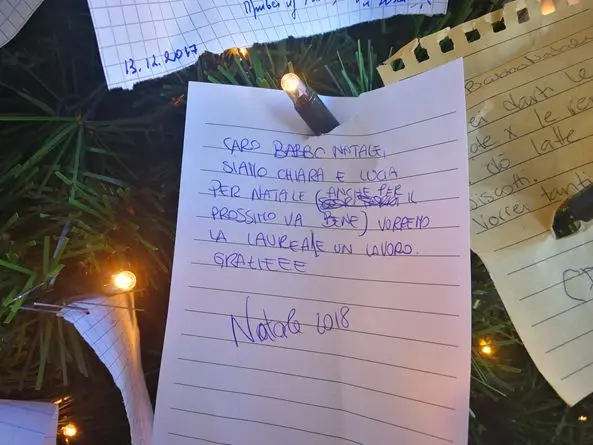 13.12.2017
CARO BABBO NATALE,
SIAMO CHIARA E LUCIA
PER NATALE (ANCHE PER IL
PROSSIMO VA BENE) VORREMMO
LA LAUREA E UN LAVORO.
GRAZIEEE
Natale 2018
darti le
x le
latte
biscotti.
Vorrei tanti